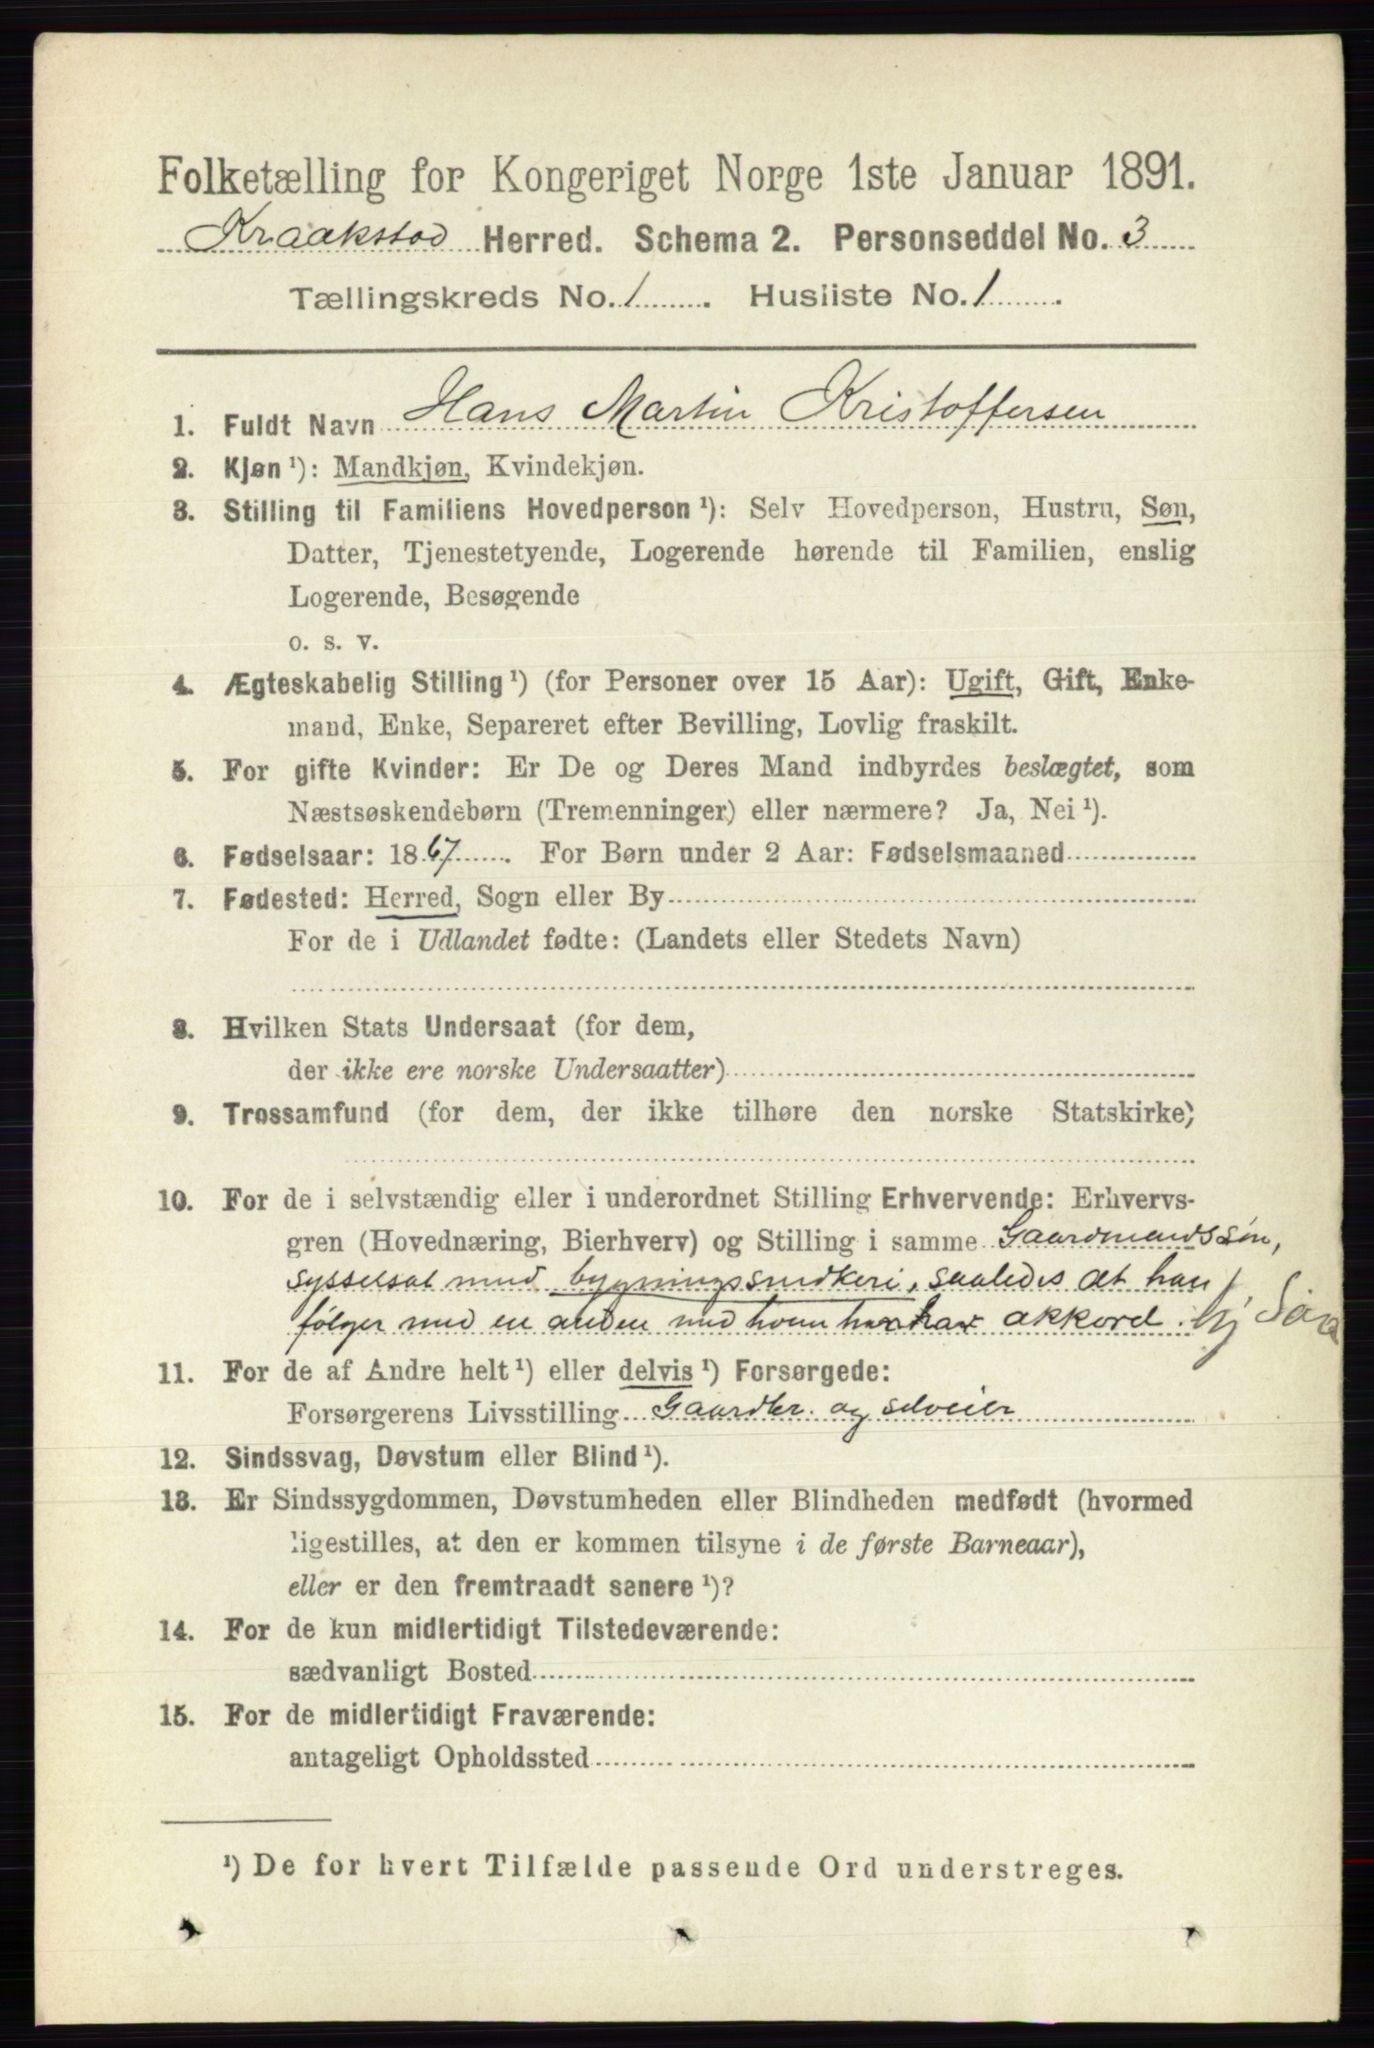 Folketælling for Kongeriget Norge 1ste Januar 1891.
Kraakstad Herred. Schema 2. Personseddel No. 3
Tællingskreds No. 1. Husliste No. 1.
1. Fuldt Navn Hans Martin Kristoffersen
2. Kjøn ¹): Mandkjøn, Kvindekjøn.
3. Stilling til Familiens Hovedperson ¹): Selv Hovedperson, Hustru, Søn,
Datter, Tjenestetyende, Logerende hørende til Familien, enslig
Logerende, Besøgende
o. s. v.
4. Ægteskabelig Stilling ¹) (for Personer over 15 Aar): Ugift, Gift, Enke-
mand, Enke, Separeret efter Bevilling, Lovlig fraskilt.
5. For gifte Kvinder: Er De og Deres Mand indbyrdes beslægtet, som
Næstsøskendebørn (Tremenninger) eller nærmere? Ja, Nei ¹).
6. Fødselsaar: 1867. For Børn under 2 Aar: Fødselsmaaned
7. Fødested: Herred, Sogn eller By
For de i Udlandet fødte: (Landets eller Stedets Navn)
8. Hvilken Stats Undersaat (for dem,
der ikke ere norske Undersaatter)
9. Trossamfund (for dem, der ikke tilhøre den norske Statskirke)
10. For de i selvstændig eller i underordnet Stilling Erhvervende: Erhvervs-
gren (Hovednæring, Bierhverv) og Stilling i samme Gaardmandssøn,
sysselsat med bygningssnedkeri, saaledes at han
følger med en anden med hvem han har akkord.
11. For de af Andre helt ¹) eller delvis ¹) Forsørgede:
Forsørgerens Livsstilling Gaardbr. og selveier
12. Sindssvag, Døvstum eller Blind ¹).
13. Er Sindssygdommen, Døvstumheden eller Blindheden medfødt (hvormed
ligestilles, at den er kommen tilsyne i de første Barneaar),
eller er den fremtraadt senere ¹)?
14. For de kun midlertidigt Tilstedeværende:
sædvanligt Bosted
15. For de midlertidigt Fraværende:
antageligt Opholdssted
¹) De for hvert Tilfælde passende Ord understreges.